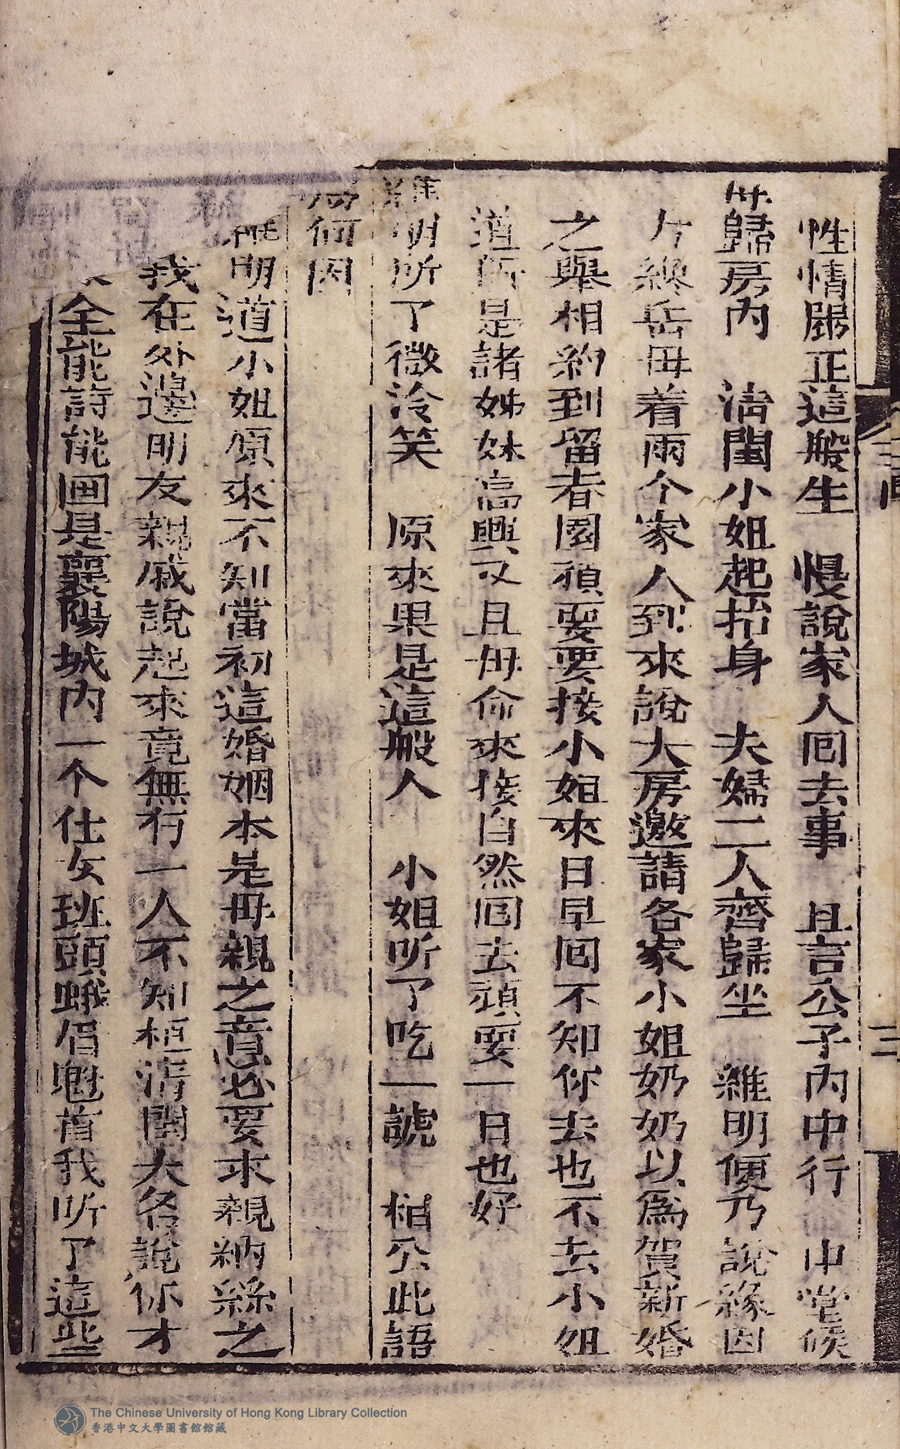 性情歸正這般生　慢說家人囘去事　且言公子內中行　中堂候
母歸房內　清閨小姐起抬身　夫婦二人齊歸坐　維明便乃說緣因
方纔岳母着兩个家人到來說大房邀請各家小姐奶奶以爲賀新婚
之舉相約到留春園頑耍要接小姐來日早囘不知你去也不去小姐
道旣是諸姊妹高興又且母命來接自然囘去頑耍一日也好
維明听了微冷笑　原來果是這般人　小姐听了吃一諕　相公此語
爲何因
維明道小姐原來不知當初這婚姻本是母親之意必要求親納絲之
我在外邊朋友親戚說起來竟無有一人不知桓清閨大名說你才
全能詩能画是襄陽城內一个仕女班頭蛾眉魁首我听了這些
The Chinese University of Hong Kong Library Collection
香港中文大學圖書館館藏